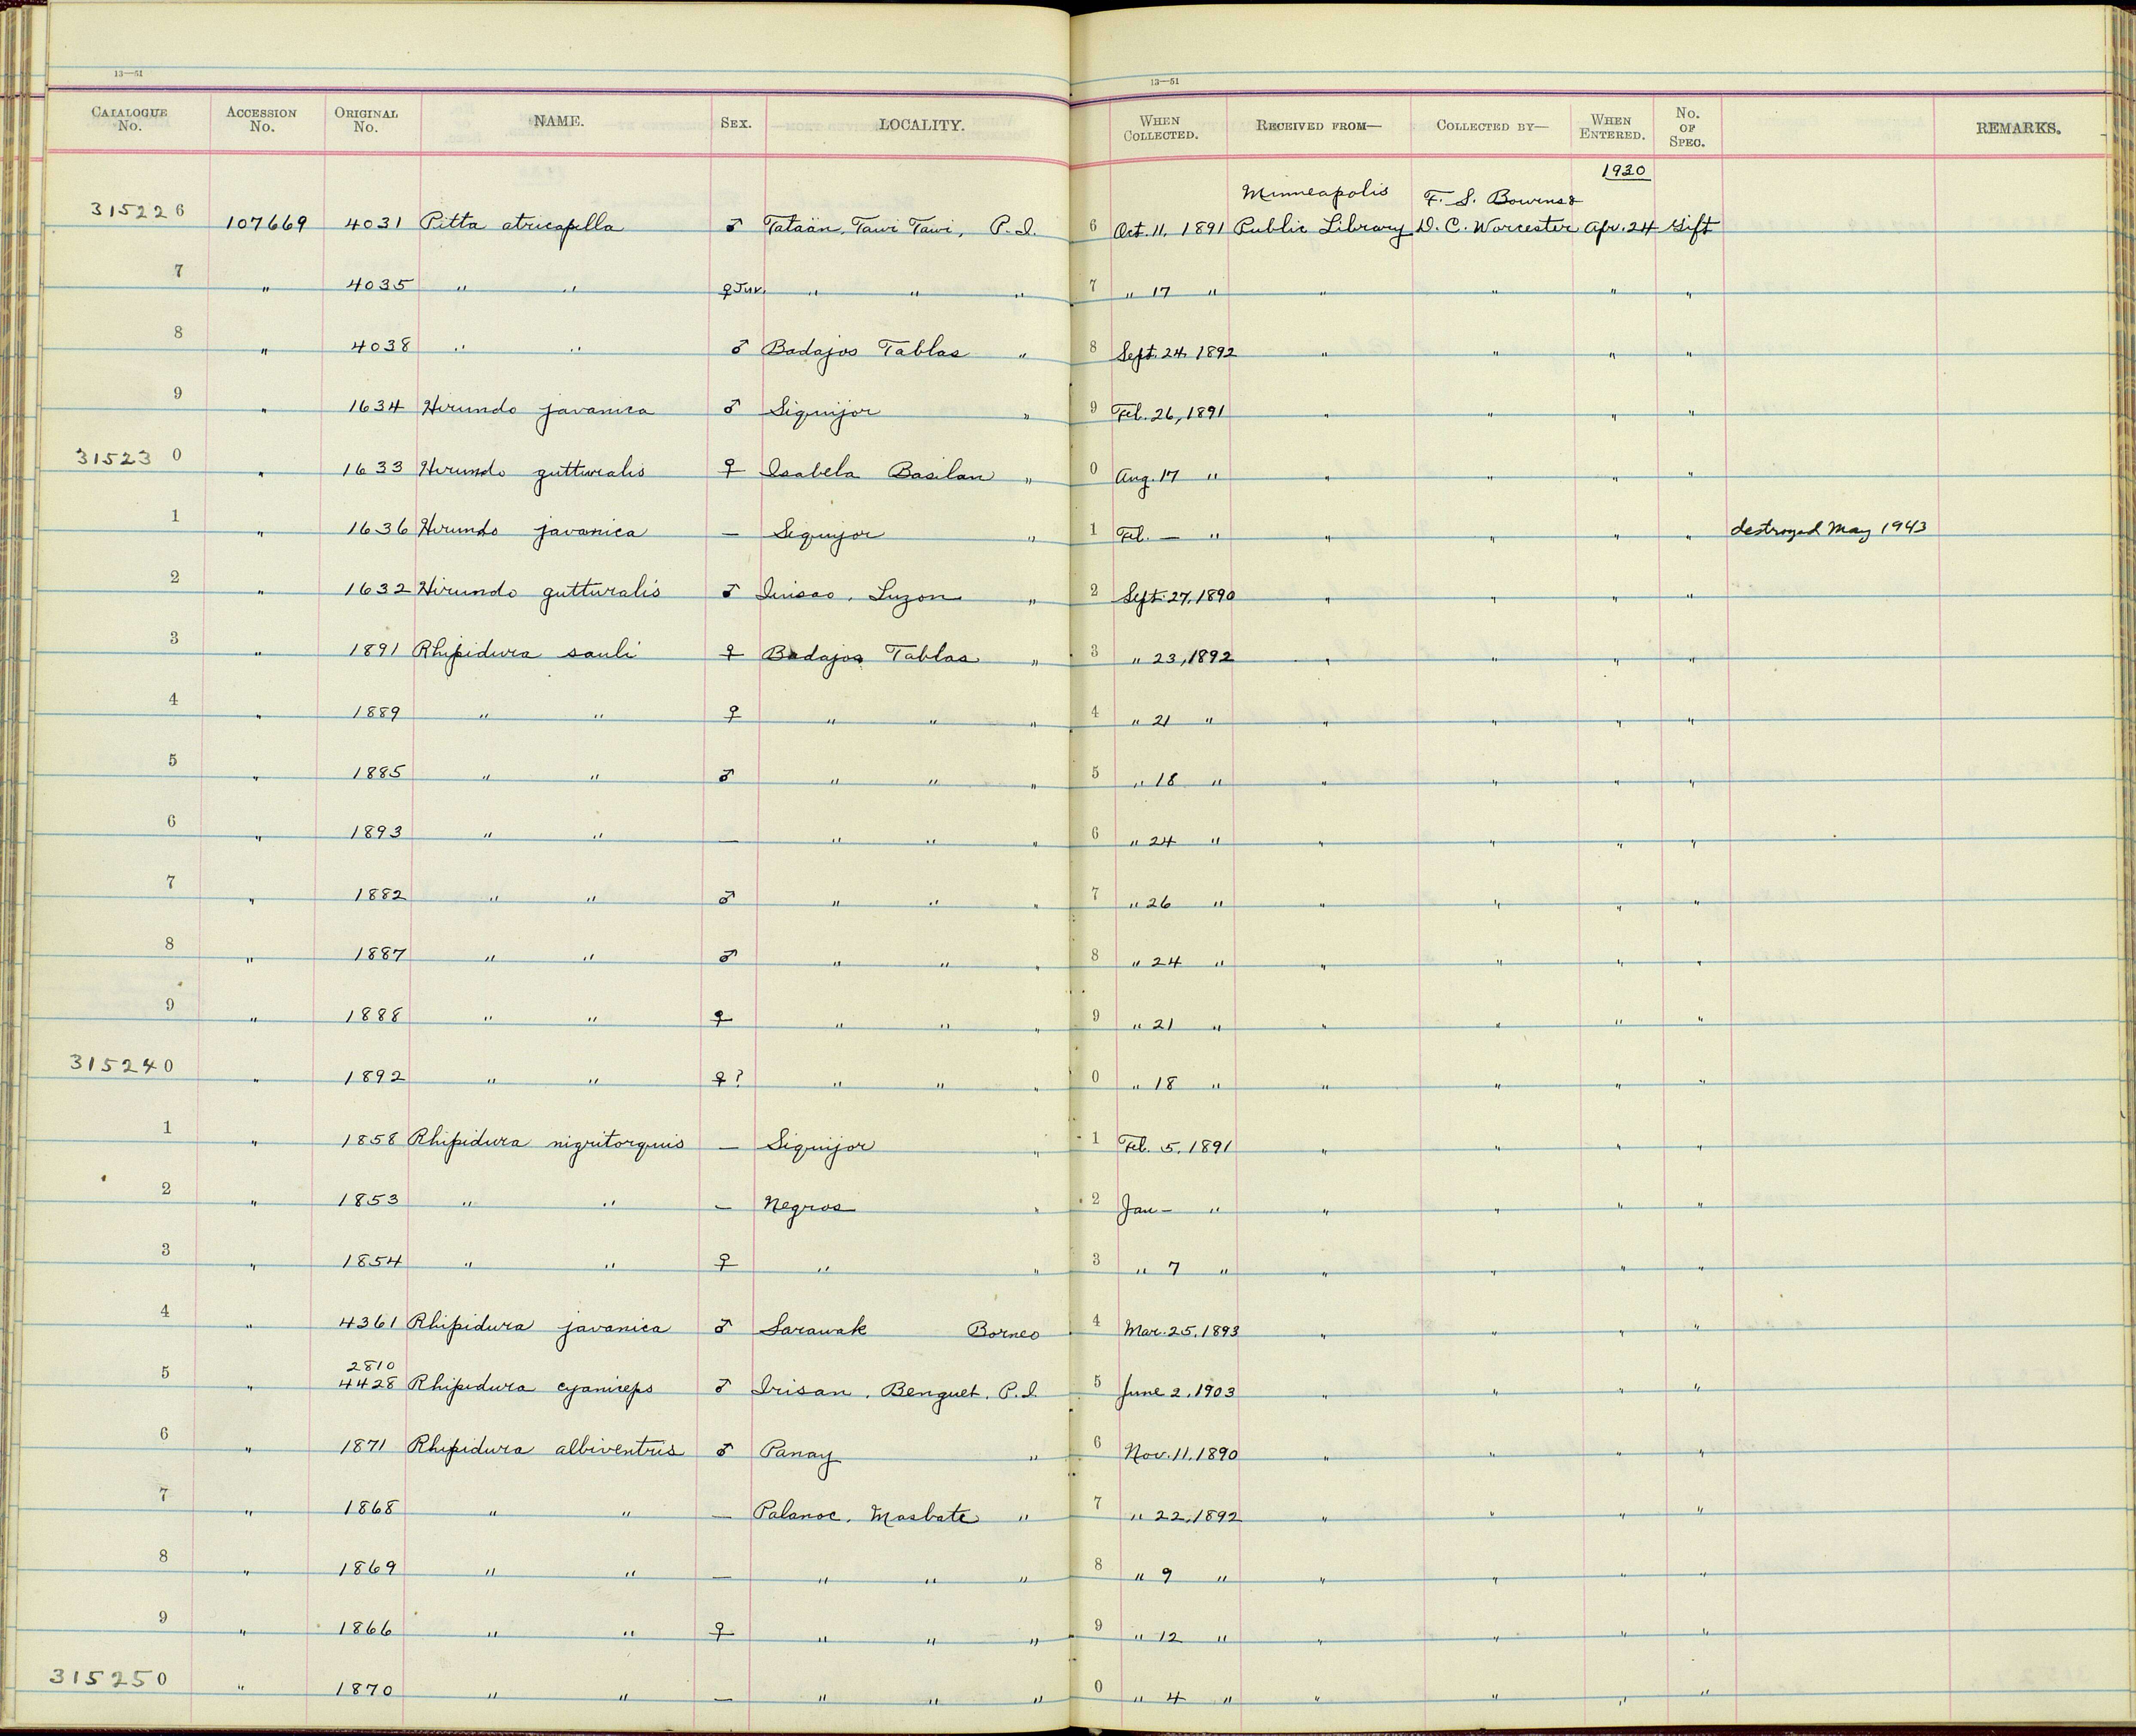 13—51 13—51
CATALOGUE No. ACCESSION No. ORIGINAL No. NAME. SEX. LOCALITY. WHEN COLLECTED. RECEIVED FROM— COLLECTED BY— WHEN ENTERED. No. OF SPEC. REMARKS.
1930
Minneapolis F. S. Bowns &
315226 107669 4031 Pitta atricapilla ♂ Tataan, Tawi Tawi, P.I. 6 Oct. 11, 1891 Public Library D. C. Worcester Apr. 24 Gift
7 " 4035 " " ♀ Juv. " " " 7 " 17 " " " " "
8 " 4038 " " ♂ Badajos Tablas " 8 Sept. 24, 1892 " " " "
9 " 1634 Hirundo javanica ♂ Siquijor " 9 Feb. 26, 1891 " " " "
315230 " 1633 Hirundo gutturalis ♀ Isabela Basilan " 0 Aug. 17 " " " " "
1 " 1636 Hirundo javanica — Siquijor " 1 Feb. — " " " " " destroyed May 1943
2 " 1632 Hirundo gutturalis ♂ Luzon " 2 Sept. 27, 1890 " " " "
3 " 1891 Rhipidura sauli ♀ Badajos Tablas " 3 " 23, 1892 " " " "
4 " 1889 " " ♀ " " " 4 " 21 " " " " "
5 " 1885 " " ♂ " " " 5 " 18 " " " " "
6 " 1893 " " — " " " 6 " 24 " " " " "
7 " 1882 " " ♂ " " " 7 " 26 " " " " "
8 " 1887 " " ♂ " " " 8 " 24 " " " " "
9 " 1888 " " ♀ " " " 9 " 21 " " " " "
315240 " 1892 " " ♀? " " " 0 " 18 " " " " "
1 " 1858 Rhipidura nigritorquis — Siquijor " 1 Feb. 5, 1891 " " " "
2 " 1853 " " — Negros " 2 Jan — " " " " "
3 " 1854 " " ♀ " " 3 " 7 " " " " "
4 " 4361 Rhipidura javanica ♂ Sarawak Borneo 4 Mar. 25, 1893 " " " "
2810
5 " 4428 Rhipidura cyaniceps ♂ Irisan, Benguet, P.I. 5 June 2, 1903 " " " "
6 " 1871 Rhipidura albiventris ♂ Panay " 6 Nov. 11, 1890 " " " "
7 " 1868 " " — Palanoc, Masbate " 7 " 22, 1892 " " " "
8 " 1869 " " — " " " 8 " 9 " " " " "
9 " 1866 " " ♀ " " " 9 " 12 " " " " "
315250 " 1870 " " — " " " 0 " 4 " " " " "